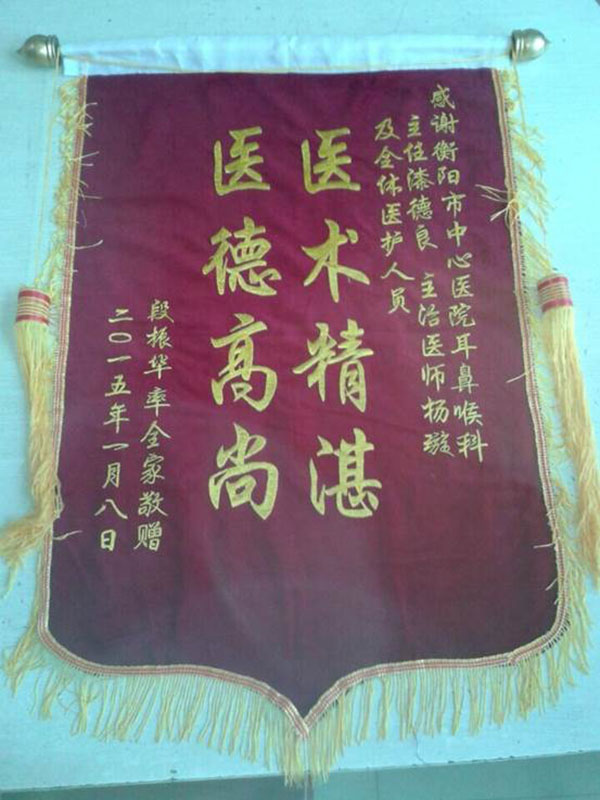 感谢衡阳市中心医院耳鼻喉科
主任漆德良 主治医师杨璇
及全体医护人员
医术精湛
医德高尚
段振华率全家敬赠
二〇一五年一月八日